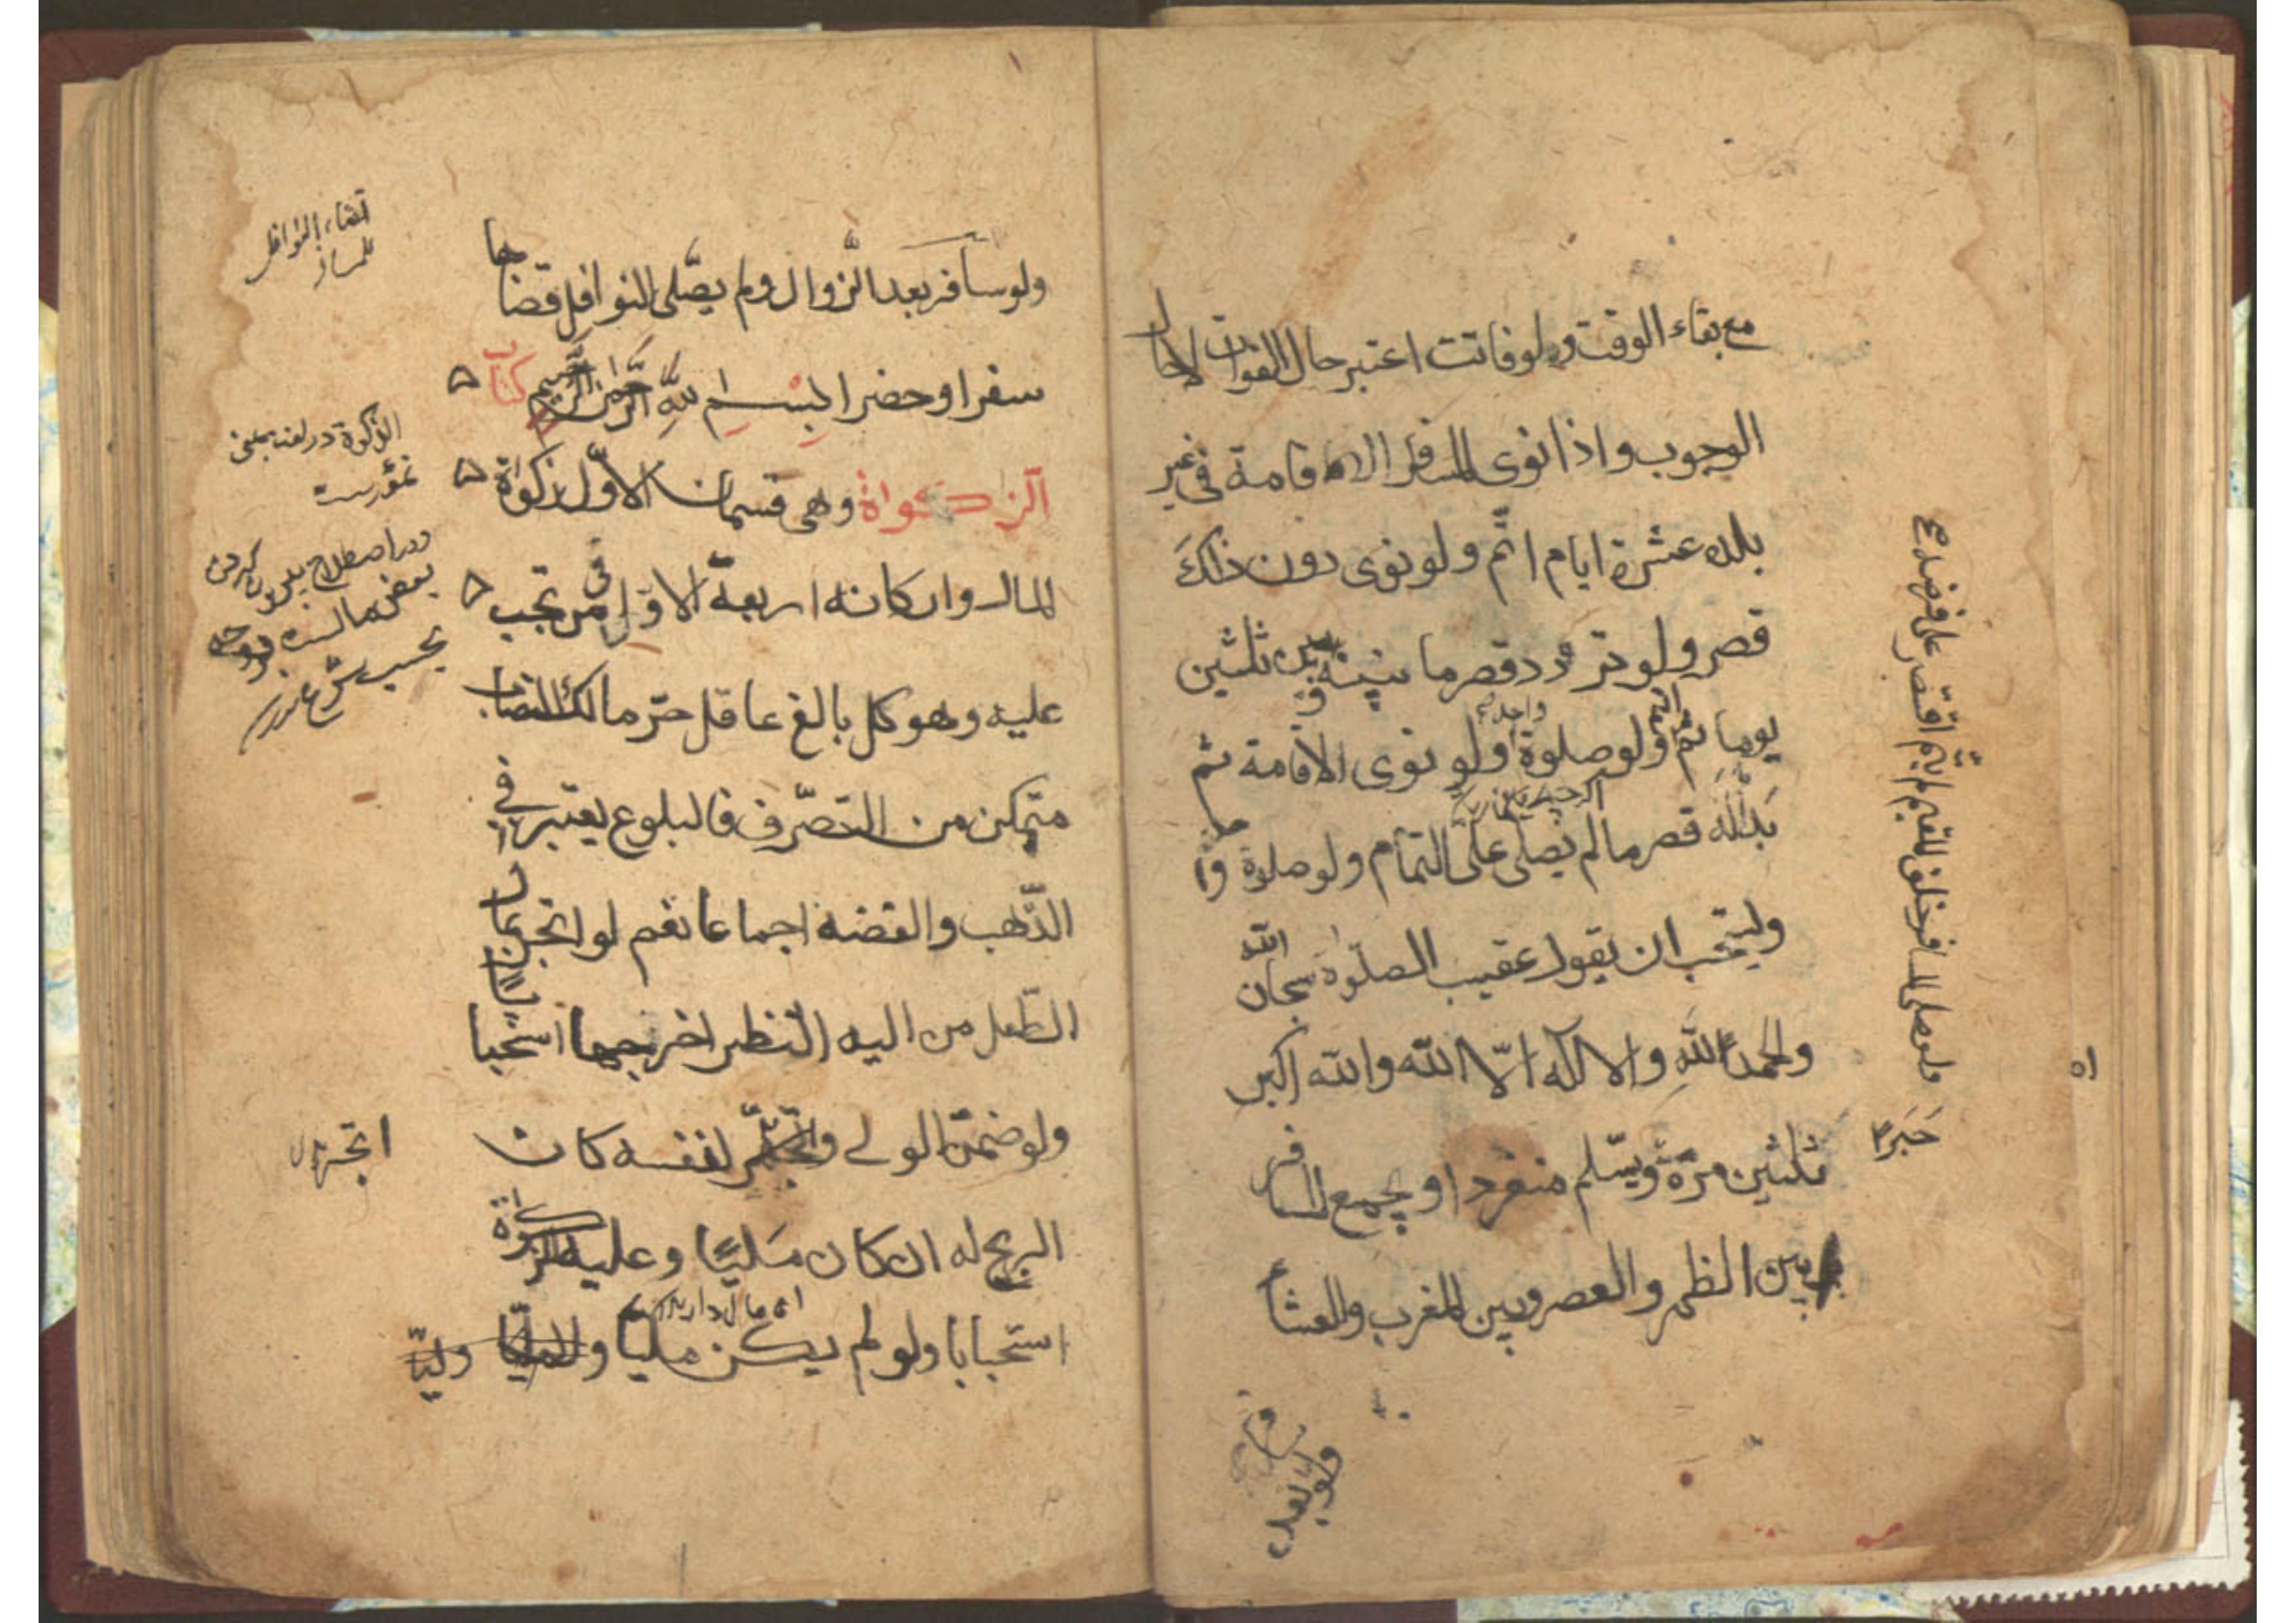 مع بقاء الوقت ولو فاتت اعتبر حال الفوات لا حال
الوجوب واذا نوى المسافر الاقامة في غير
بلده عشرة ايام اتم ولو نوى دون ذلك
قصر ولو تردد قصر ما بينه وبين ثلثين
يوما ثم اتم ولو صلوة واحدة ولو نوى الاقامة ثم
بدا له قصر ما لم يصلى على التمام ولو صلوة
ويستحب ان يقول عقيب الصلوة سبحان الله
والحمد لله ولا اله الا الله والله اكبر
ثلثين مرة
جبرا
و يجمع المسافر
بين الظهر والعصر وبين المغرب والعشا
ولو صلى المسافر خلف المقيم لم يتم اقتصر على فرضه
ولو سافر
۵۱
ولو سافر بعد الزوال ولم يصلى النوافل قضاها
سفرا وحضرا بسم الله الرحمن الرحيم كتاب
الزكواة وهى قسمان الاول زكواة
المال واركانه اربعة الاول فى من تجب
عليه وهو كل بالغ عاقل حر مالك النصاب
متمكن من التصرف فالبلوغ يعتبر في
الذهب والفضة اجماعا نعم لو اتجر بمال
الطفل من اليه النظر اخرجها استحبابا
ولو ضمن الولي واتجر لنفسه كان
الربح له ان كان مليا وعليه الزكوة
استحبابا ولو لم يكن مليا ولا وليا
قضاء النوافل
للمسافر
الزكوة در لغت بمعنى
نمو است
ودر اصطلاح بيرون كردن
بعض مال است
بحسب شرع
اتجر